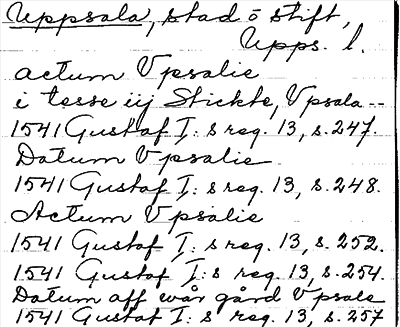 Uppsala, stad o stift,
Upps. l.
actum Vpsalie
i tesse iij Stickte, Vpsala --
1541 Gustaf I: s reg. 13, s. 247.
Datum Vpsalie.
1541 Gustaf I: s reg. 13, s. 248.
Actum Vpsalie
1541 Gustaf I: s reg. 13, s. 252.
1541 Gustaf I: s reg. 13, s. 254.
Datum aff wår gård Vpsale
1541 Gustaf I: s reg. 13, s. 257